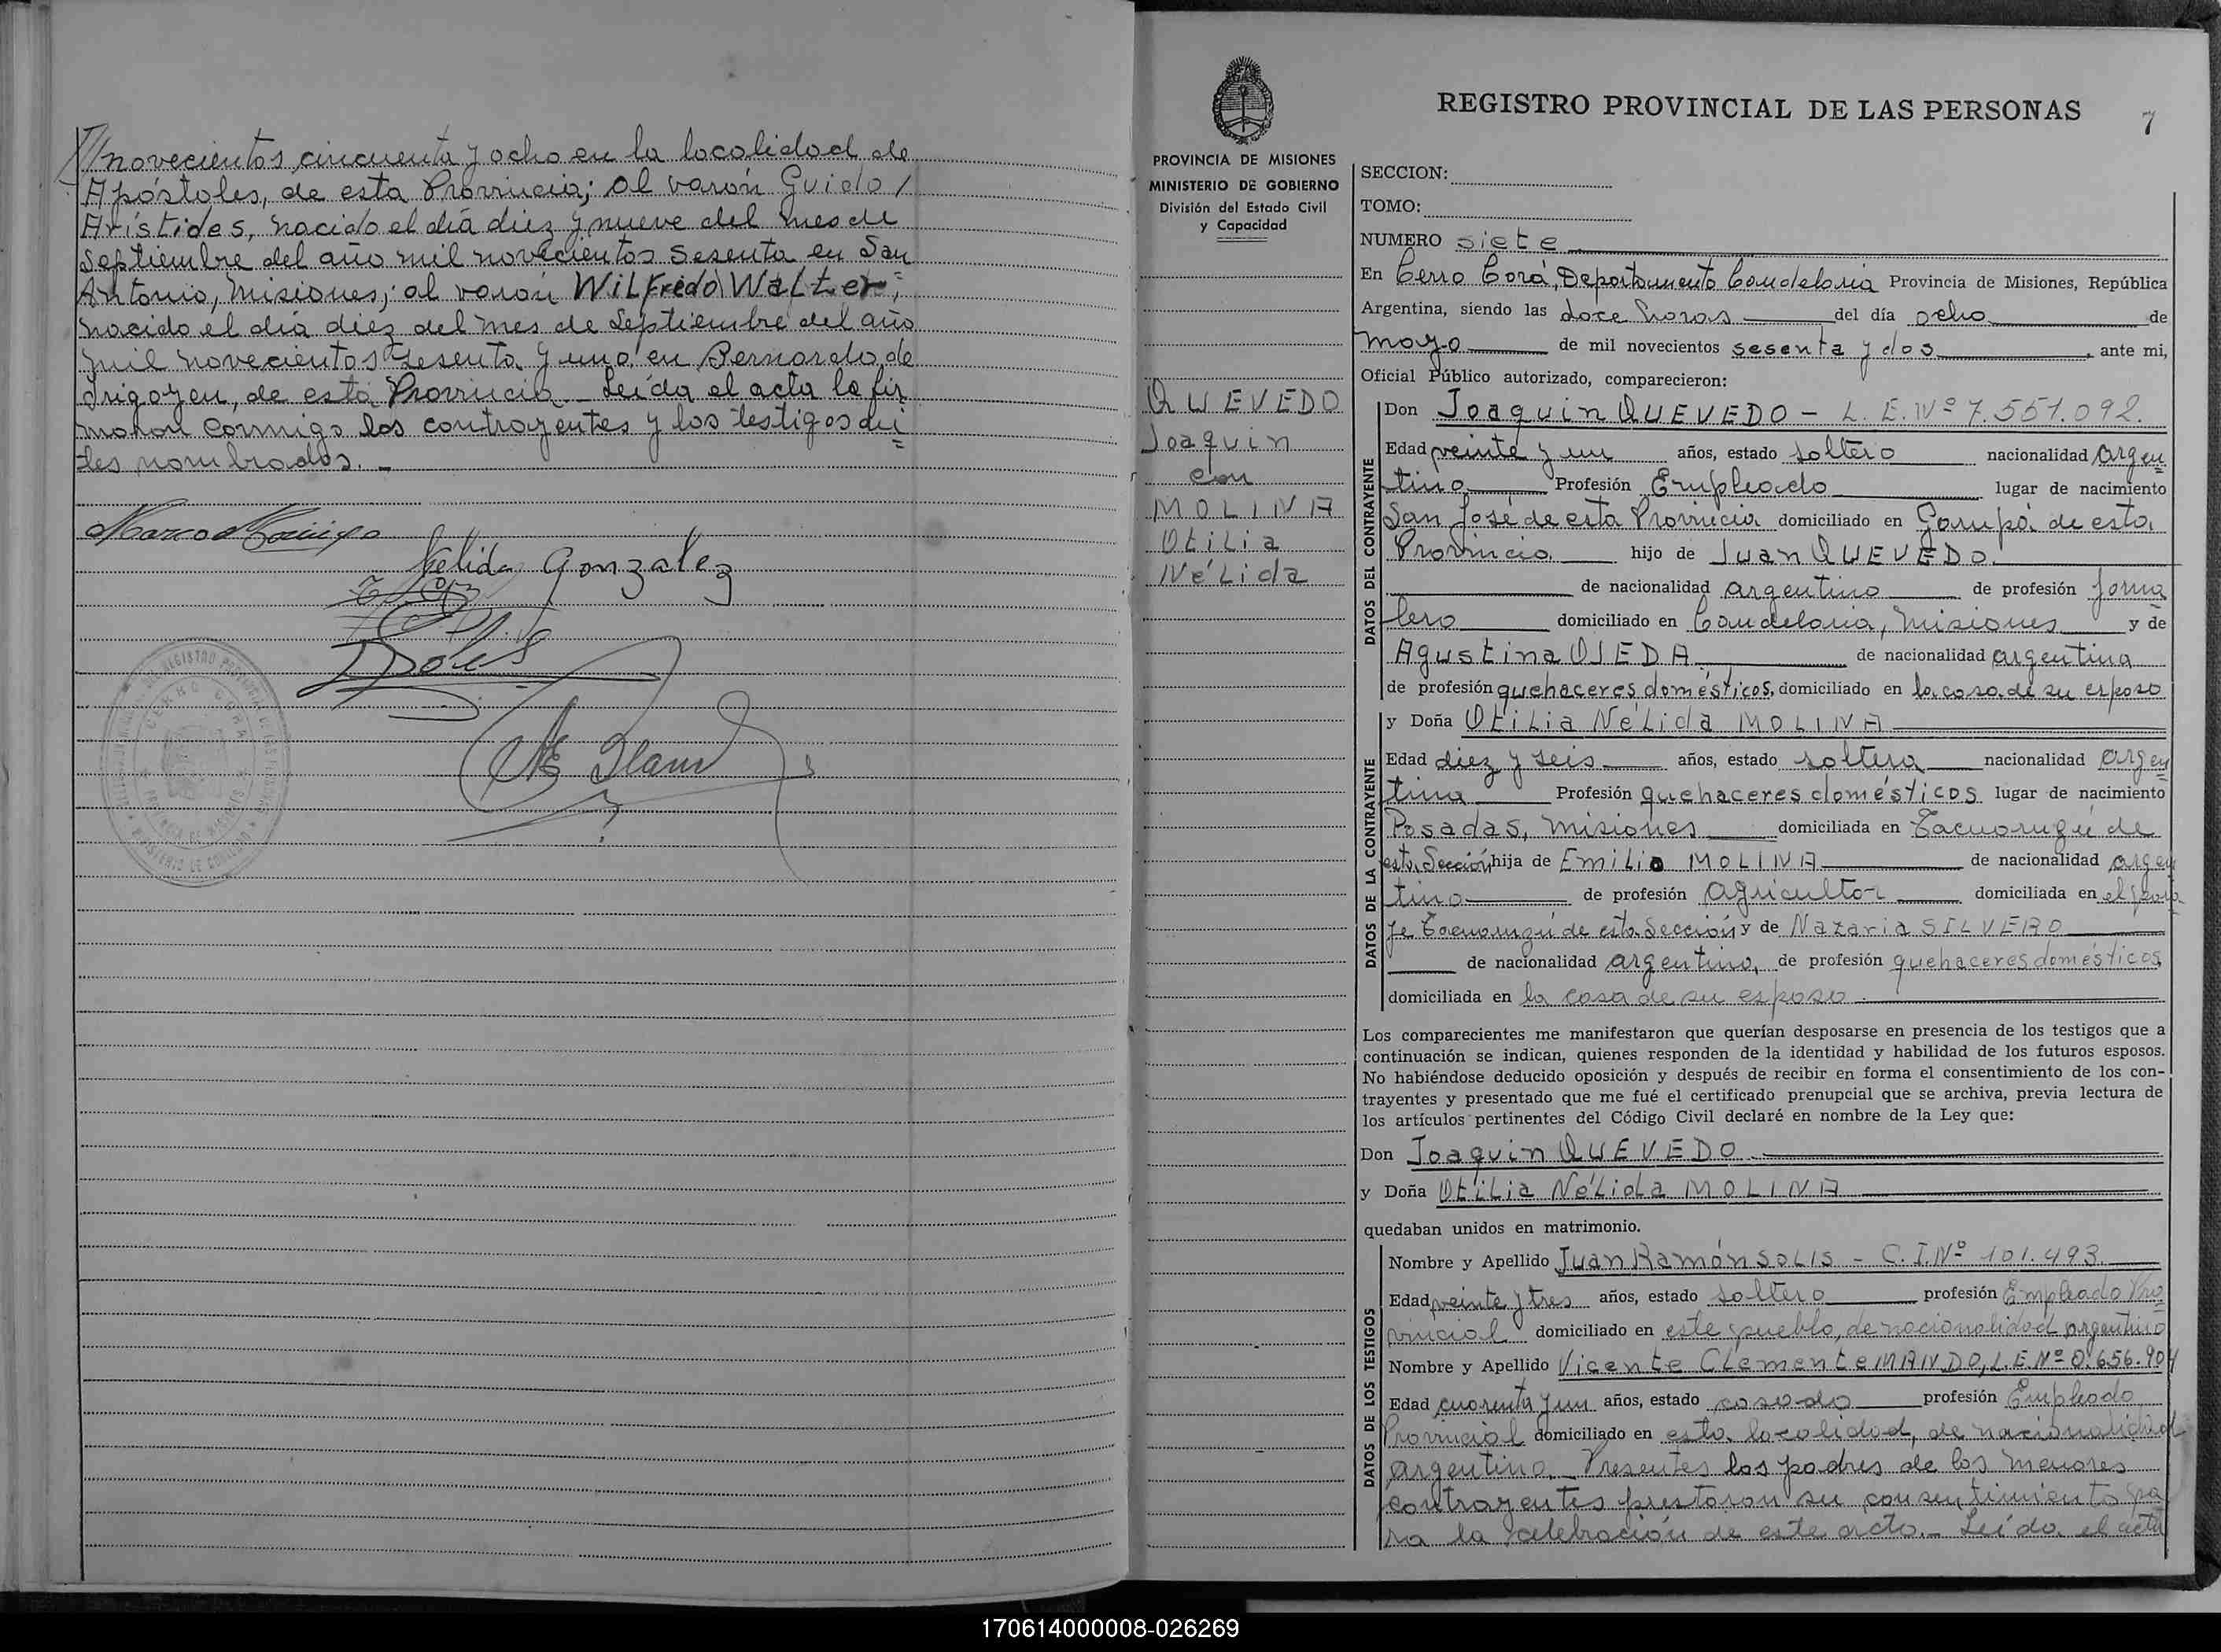 //novecientos cincuenta y ocho en la localidad de
Apóstoles, de esta Provincia; al varón Guido /
Arístides, nacido el día diez y nueve del mes de
Septiembre del año mil novecientos sesenta en San
Antonio, Misiones; al varón Wilfredo Walter;
nacido el día diez del mes de Septiembre del año
mil novecientos sesenta y uno en Bernardo de
Irigoyen, de esta Provincia.- Leída el acta la fir
maron conmigo los contrayentes y los testigos an=
tes nombrados.-
Nelida Gonzalez
Solis
REGISTRO PROVINCIAL DE LAS PERSONAS
7
PROVINCIA DE MISIONES
MINISTERIO DE GOBIERNO
División del Estado Civil
y Capacidad
QUEVEDO
Joaquin
con
MOLINA
Otilia
Nélida
SECCION:
TOMO:
NUMERO siete
En Cerro Corá, Departamento Candelaria Provincia de Misiones, República
Argentina, siendo las doce horas del día ocho de
mayo de mil novecientos sesenta y dos, ante mi,
Oficial Público autorizado, comparecieron:
DATOS DEL CONTRAYENTE
Don Joaquin QUEVEDO - L. E. Nº 7.551.092.
Edad veinte y un años, estado soltero nacionalidad argen=
tino Profesión Empleado lugar de nacimiento
San José de esta Provincia domiciliado en Garupá de esta
Provincia hijo de Juan QUEVEDO.
de nacionalidad argentino de profesión jorna
lero domiciliado en Candelaria, Misiones y de
Agustina OJEDA de nacionalidad argentina
de profesión quehaceres domésticos, domiciliado en la casa de su esposo
DATOS DE LA CONTRAYENTE
y Doña Otilia Nélida MOLINA
Edad diez y seis años, estado soltera nacionalidad argen=
tina Profesión quehaceres domésticos lugar de nacimiento
Posadas, Misiones domiciliada en Tacuaruzú de
esta Sección hija de Emilio MOLINA de nacionalidad argen
tino de profesión agricultor domiciliada en el para
je Tacuaruzú de esta Sección y de Nazaria SILVERO
de nacionalidad argentina, de profesión quehaceres domésticos,
domiciliada en la casa de su esposo.
Los comparecientes me manifestaron que querían desposarse en presencia de los testigos que a
continuación se indican, quienes responden de la identidad y habilidad de los futuros esposos.
No habiéndose deducido oposición y después de recibir en forma el consentimiento de los con-
trayentes y presentado que me fué el certificado prenupcial que se archiva, previa lectura de
los artículos pertinentes del Código Civil declaré en nombre de la Ley que:
Don Joaquin QUEVEDO
y Doña Otilia Nélida MOLINA
quedaban unidos en matrimonio.
DATOS DE LOS TESTIGOS
Nombre y Apellido Juan Ramón SOLIS - C. I. Nº 101.493.
Edad veinte y tres años, estado soltero profesión Empleado Pro=
vincial domiciliado en este pueblo, de nacionalidad argentino
Nombre y Apellido Vicente Clemente MANDO, L. E. Nº 0.656.904
Edad cuarenta y un años, estado casado profesión Empleado
Provincial domiciliado en esta localidad, de nacionalidad
argentino.- Presentes los padres de los menores
contrayentes prestaron su consentimiento pa
ra la celebración de este acto.- Leída el acta
170614000008-026269